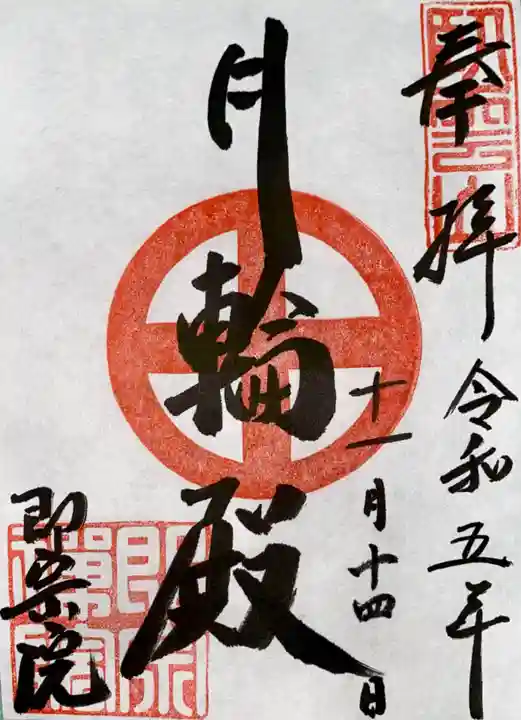 奉拝 令和五年
十一月十四日
月輪殿
即宗院